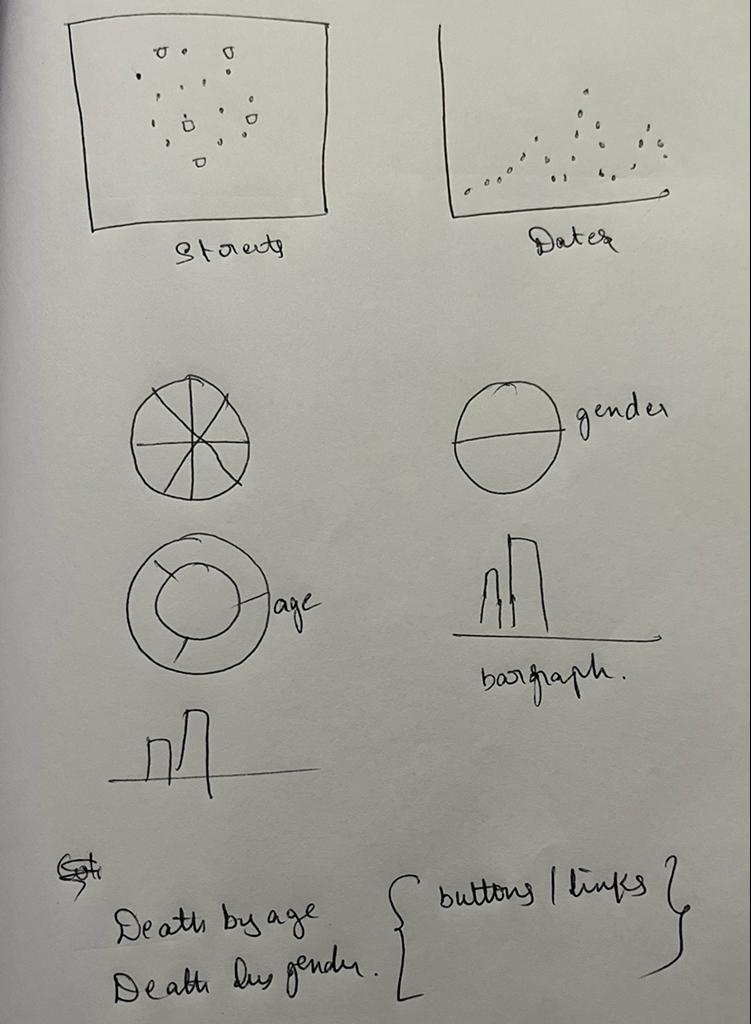 Streets
Dates
gender
age
bargraph.
Death by age
Death by gender.
buttons / links